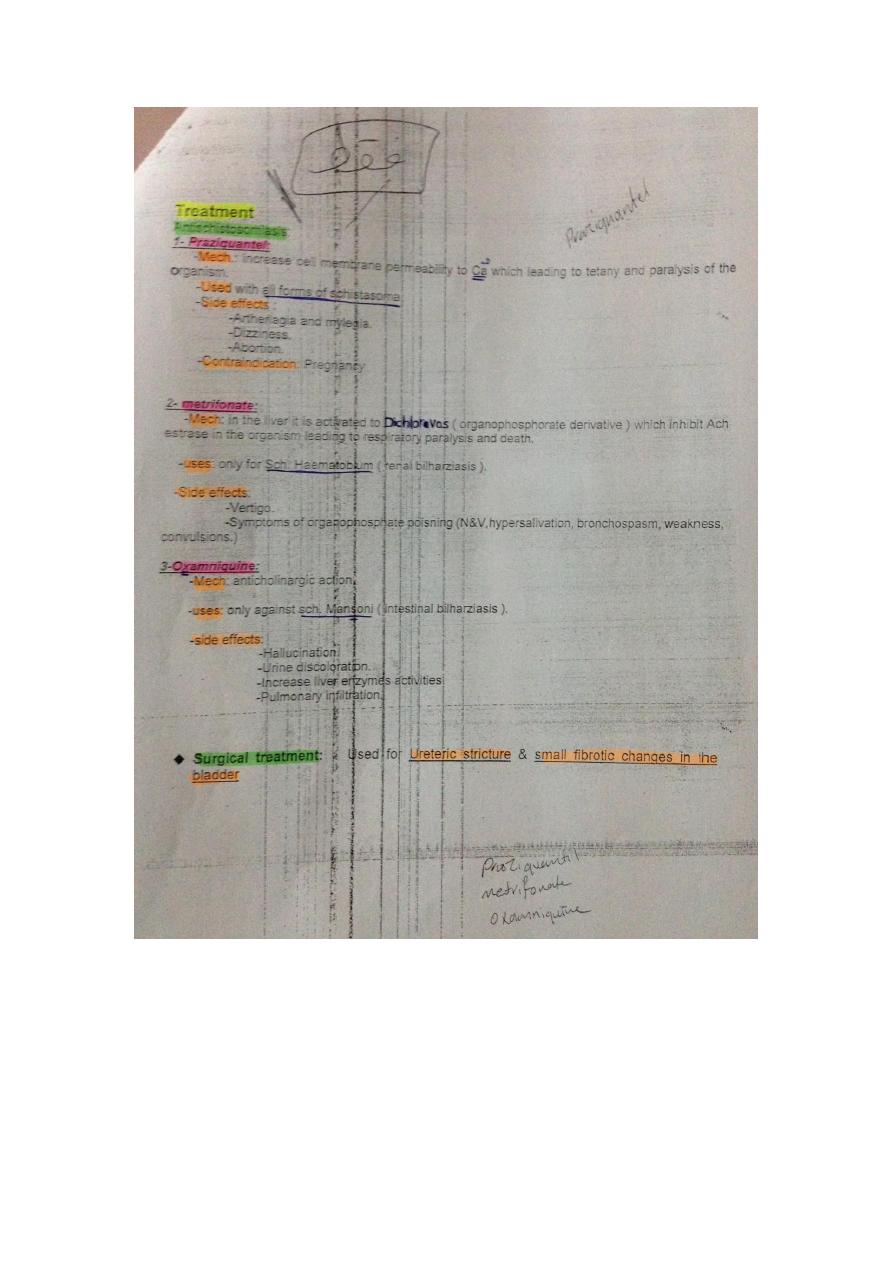 Praziquantel
Treatment
Antischistosomiasis:
1- Praziquantel:
-Mech.: increase cell membrane permeability to Ca which leading to tetany and paralysis of the
organism.
-Used with all forms of schistasoma.
-Side effects :
-Artheriagia and mylegia.
-Dizziness.
-Abortion.
-Contraindication: Pregnancy
2- metrifonate:
-Mech: in the liver it is activated to Dichlorevos ( organophosphorate derivative ) which inhibit Ach
estrase in the organism leading to respiratory paralysis and death.
-uses: only for Sch. Haematobium ( renal bilharziasis ).
-Side effects:
-Vertigo.
-Symptoms of organophosphate poisning (N&V,hypersalivation, bronchospasm, weakness,
convulsions.)
3-Oxamniquine:
-Mech: anticholinargic action.
-uses: only against sch. Mansoni ( intestinal bilharziasis ).
-side effects:
-Hallucination
-Urine discoloration.
-Increase liver enzymes activities
-Pulmonary infiltration.
◆ Surgical treatment: Used for Ureteric stricture & small fibrotic changes in the
bladder
metrifonate
Oxamniquine